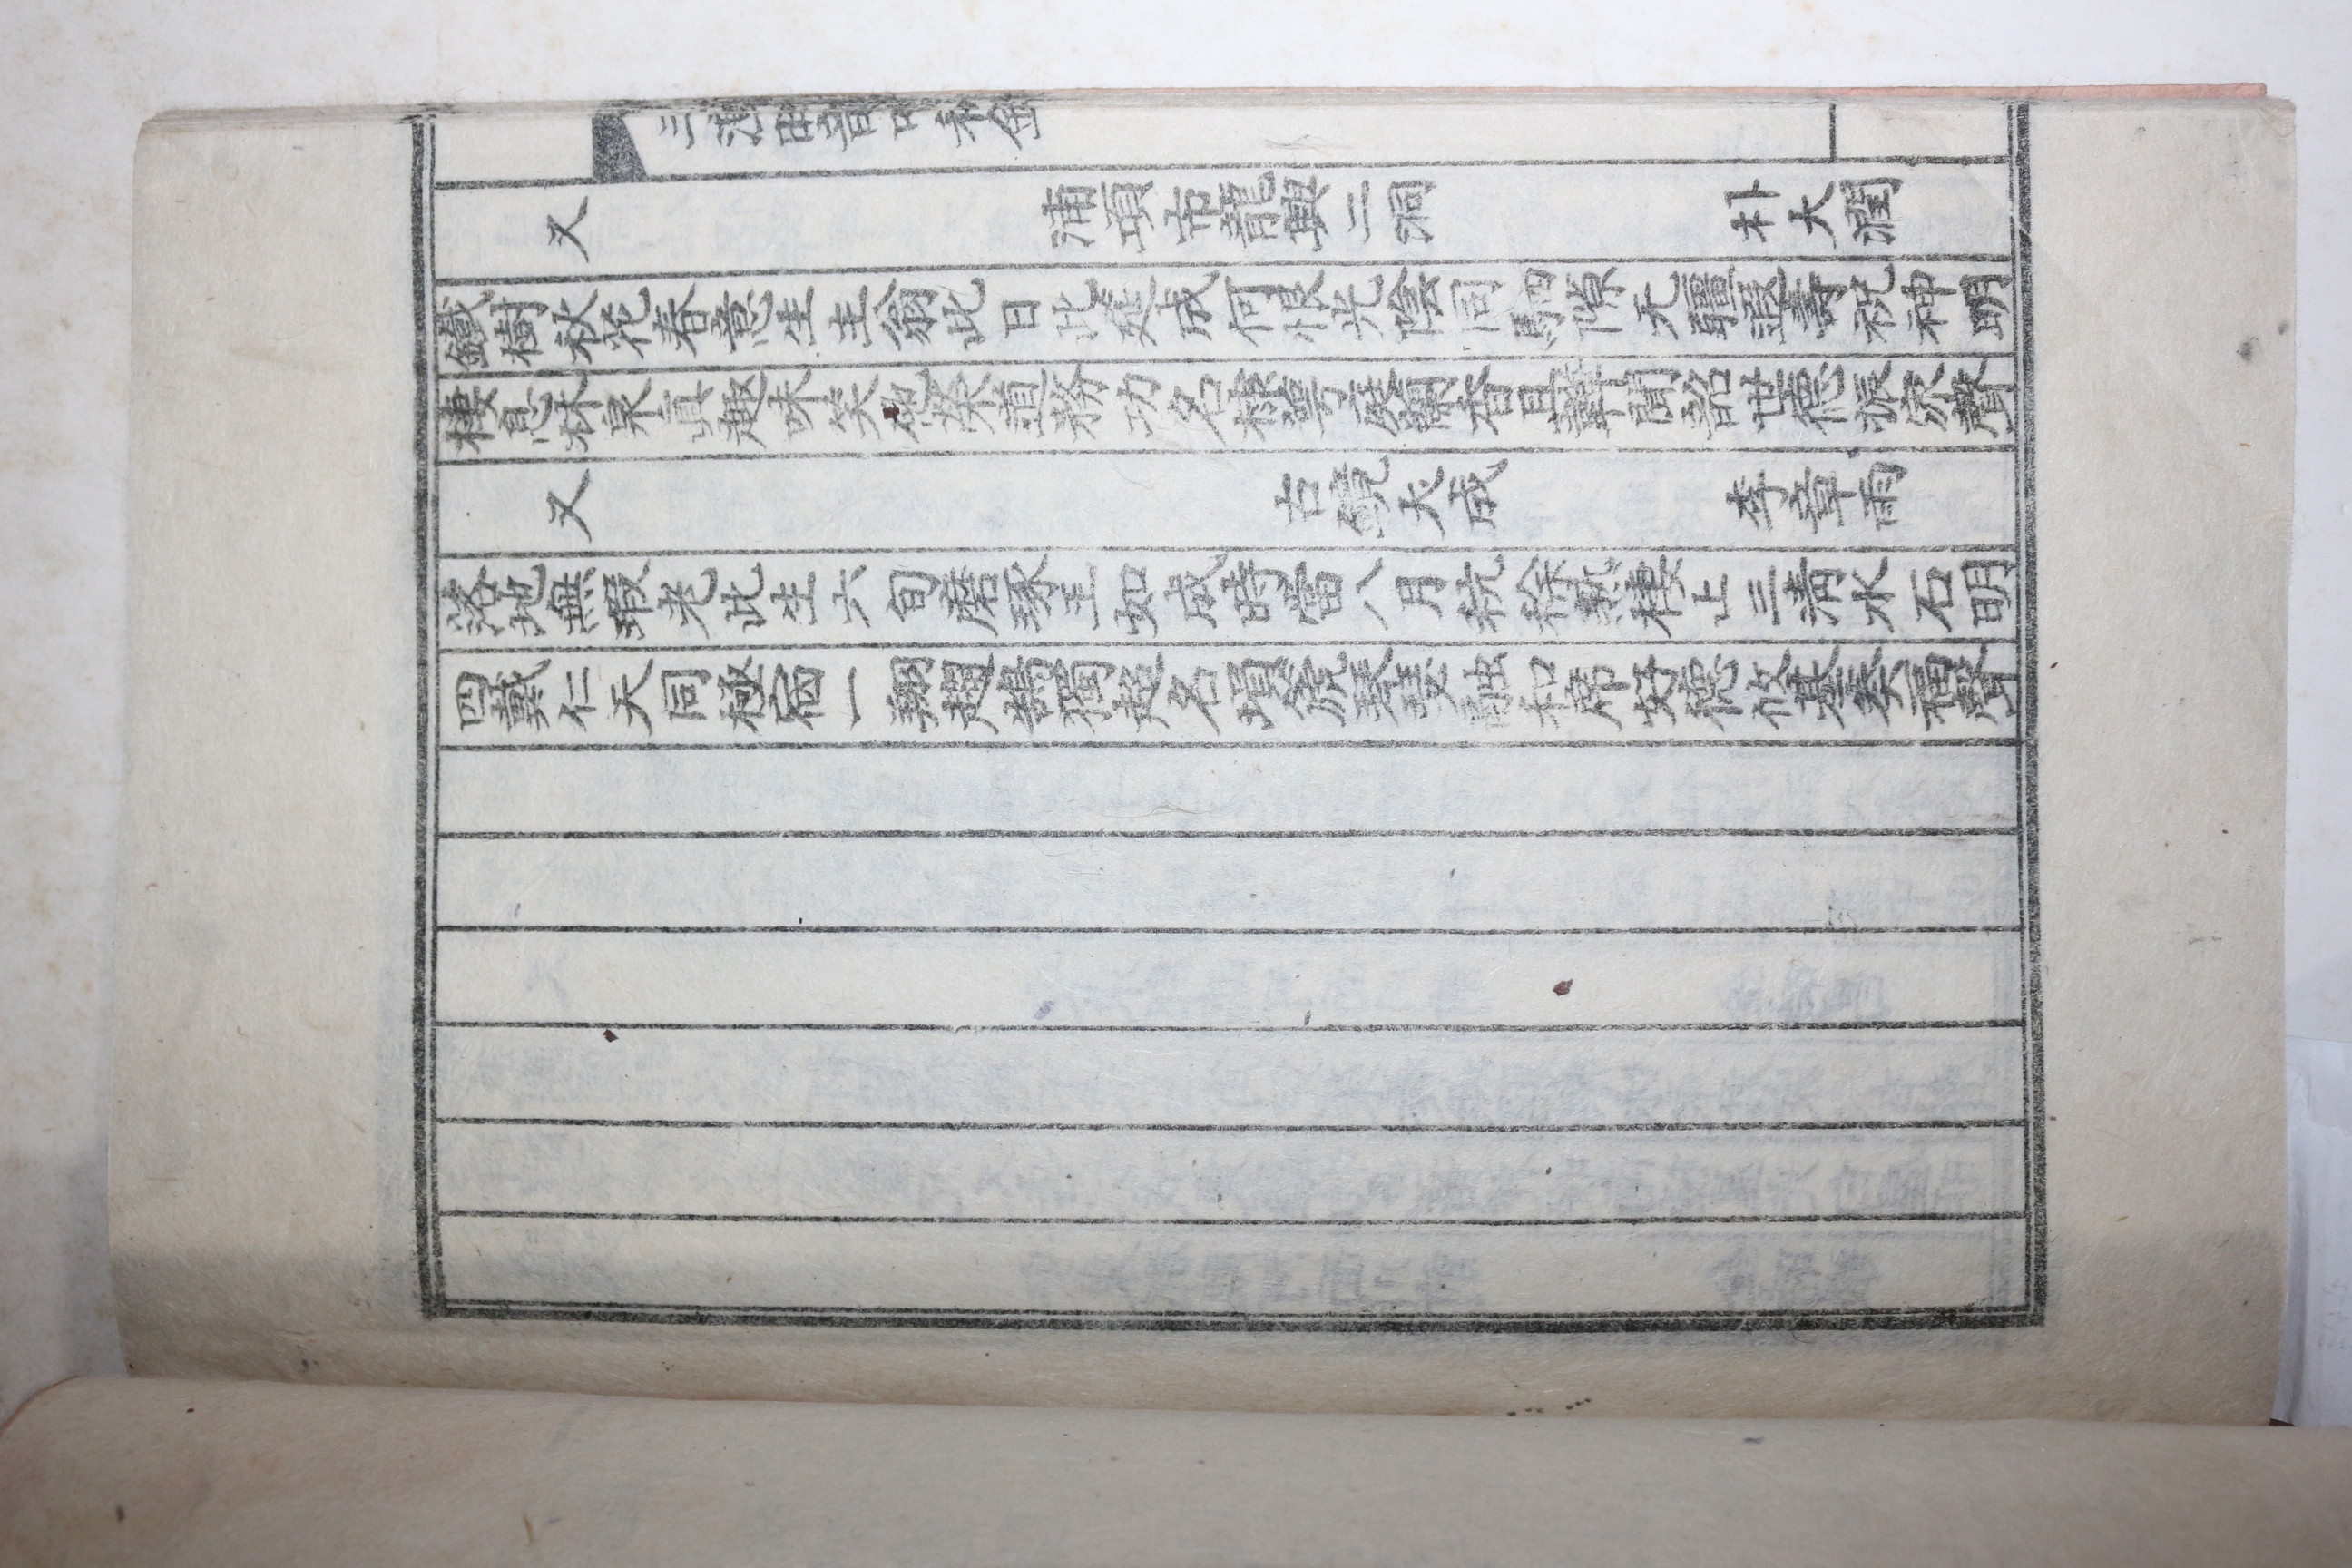 又 浦項市龍興二洞 朴大潤
鐵樹秋花春意生主翁此日此筵成何恨光陰同駟隙无疆遐壽祝神明
棲息林泉眞趣味笑他榮道務功名棣萼庭蘭香且韡聞韶世德振家聲
又 古鏡大成 李章雨
落地無瑕老此生六旬磨琢玉如成時當八月秔稌熟棲止三淸水石明
四戴仁天同極宿一翔趙鵠獨超名塤篪琴瑟融和席好德攸基奏福聲